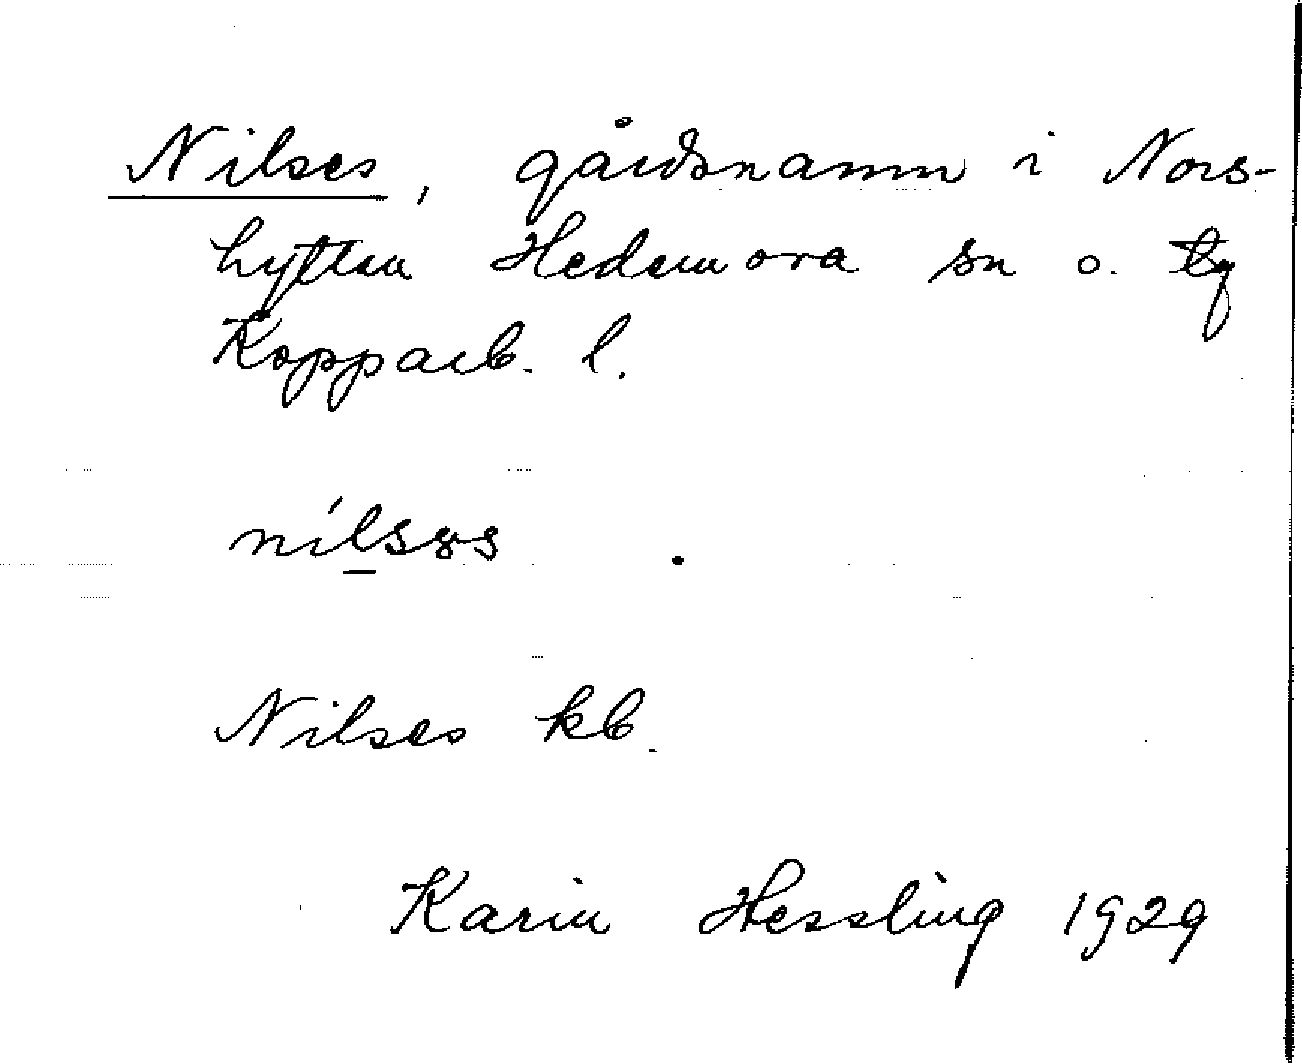 Nilses, gårdsnamn i Nors-
hyttan Hedemora sn o. tg
Kopparb. l.
Nilses kb.
Karin Hessling 1929